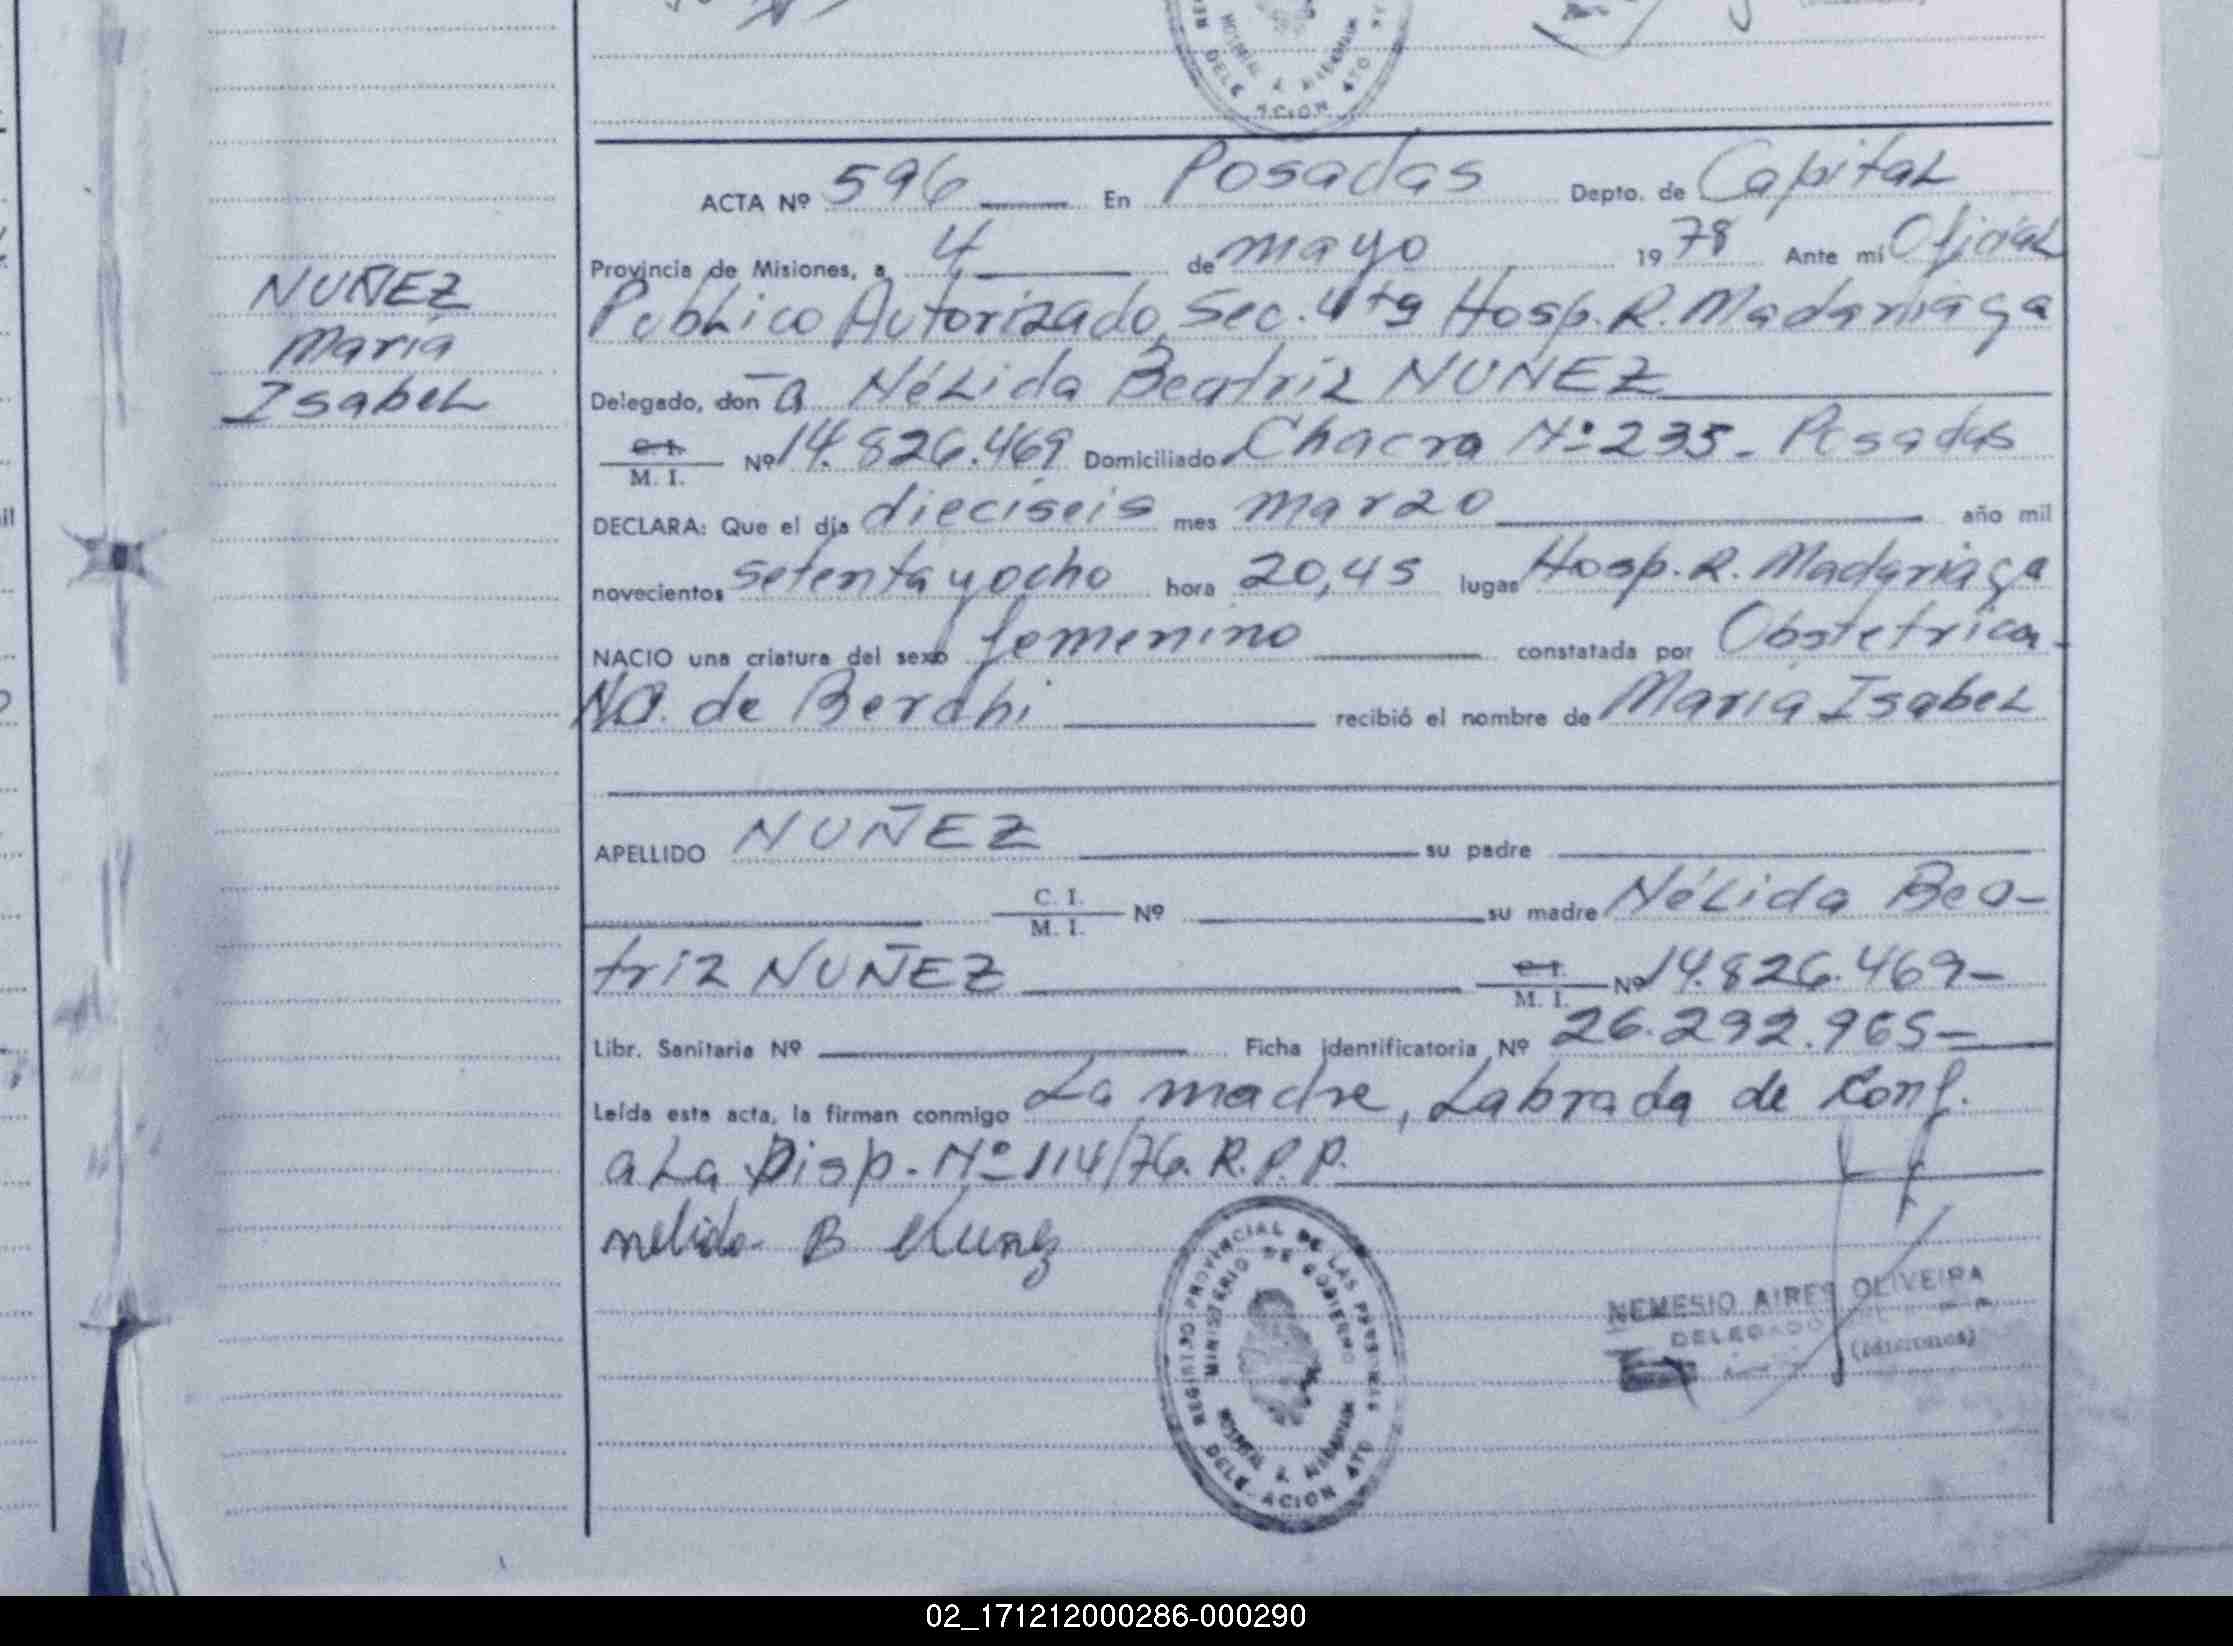 ACTA Nº 596 En Posadas Depto. de Capital
Provincia de Misiones, a 4 de mayo 1978 Ante mi Oficial
Publico Autorizado, Sec. 4ta Hosp. R. Madariaga
NUÑEZ
Maria
Isabel
Delegado, don a Nélida Beatriz NUÑEZ
C. I.
M. I. Nº 14.826.469 Domiciliado Chacra Nº 235 - Posadas
DECLARA: Que el día dieciseis mes marzo año mil
novecientos setenta y ocho hora 20,45 lugar Hosp. R. Madariaga
NACIO una criatura del sexo femenino constatada por Obstetrica
de recibió el nombre de Maria Isabel
APELLIDO NUÑEZ su padre
C. I.
M. I. Nº su madre Nélida Bea-
triz NUÑEZ C. I. M. I. Nº 14.826.469-
Libr. Sanitaria Nº Ficha identificatoria Nº 26.292.965-
Leída esta acta, la firman conmigo La madre, Labrada de Conf.
a La Disp. Nº 114/76. R.P.P.
nelida B Nuñez
REGISTRO PROVINCIAL DE LAS PERSONAS
MINISTERIO DE GOBIERNO
HOSPITAL R. MADARIAGA
DELEGACION 4TO
NEMESIO AIRES OLIVEIRA
DELEGADO
(Misiones)
02_171212000286-000290